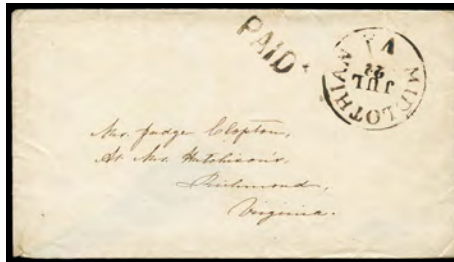 PAID
MIDLOTHIAN
VA
JUL
22
Mrs. Judge Clopton,
At Mrs. Hutchison's,
Richmond,
Virginia.